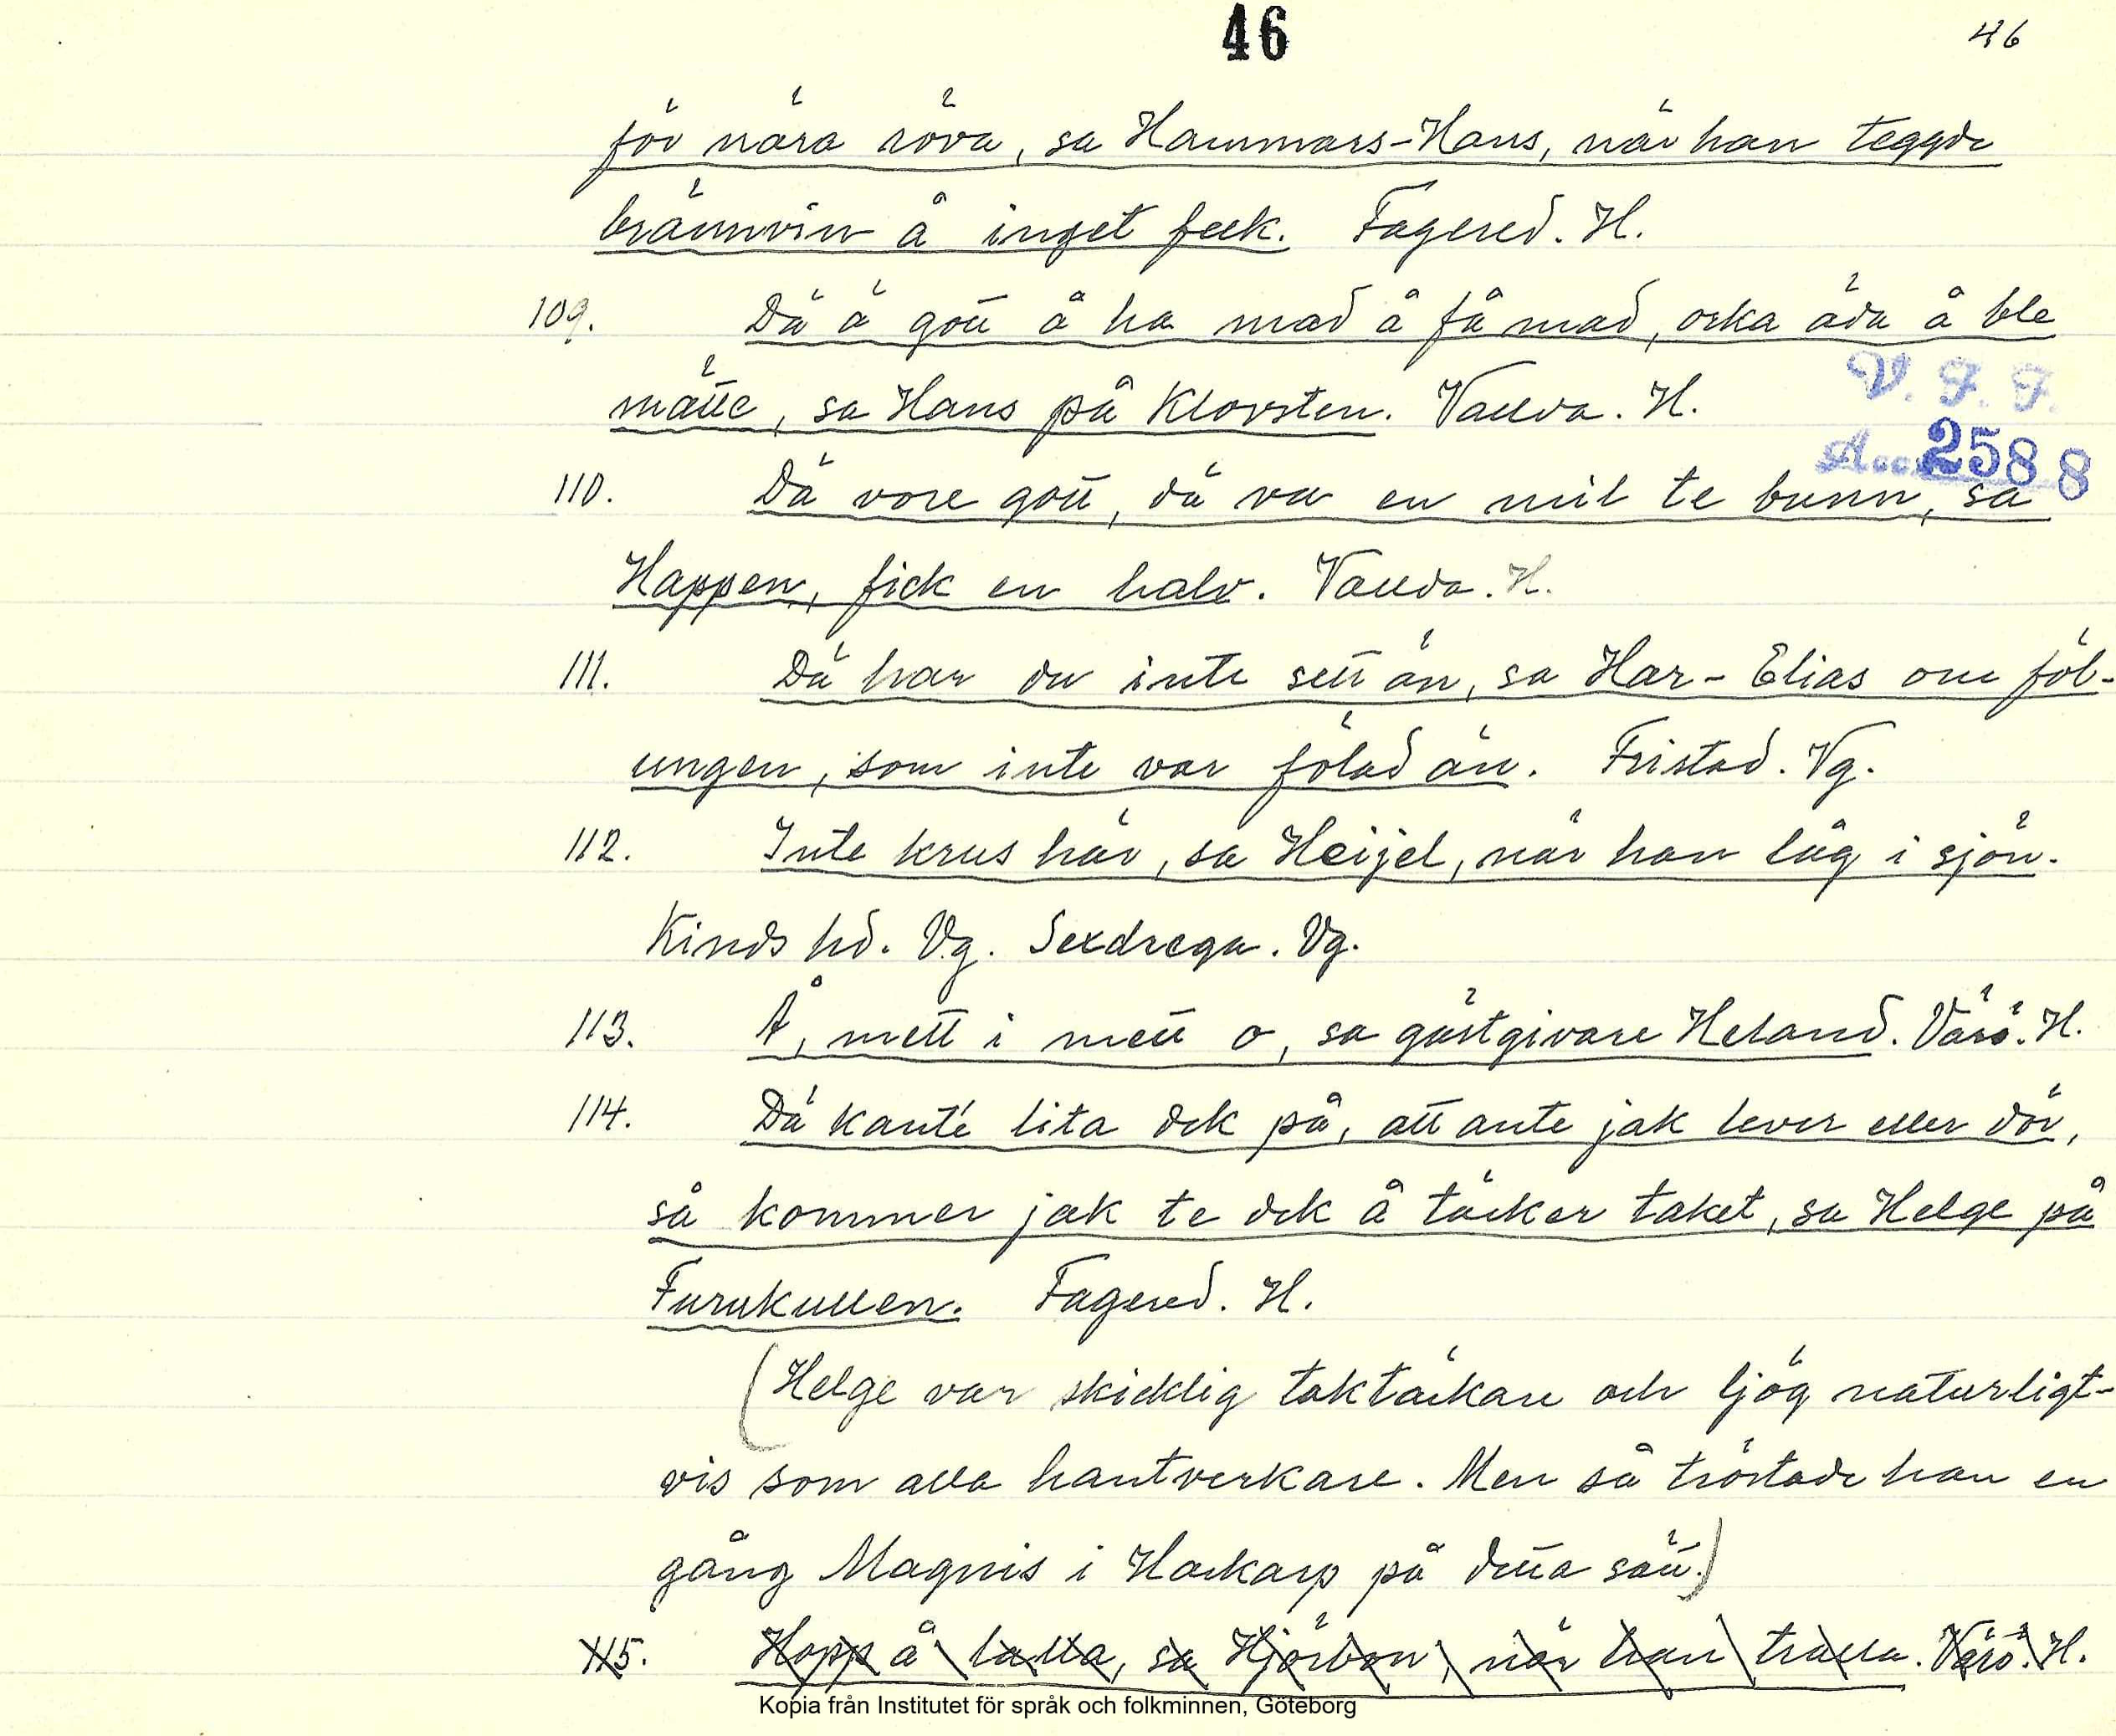 46
46
för nära röva, sa Hammars-Hans, när han teggde
brännvin å inget feck. Fagered. H.
109. Dä ä gott å ha mad å få mad, orka äda å ble
mätte, sa Hans på Klovsten. Vallda. H.
V. F. F.
Acc. 2588
110. Dä vore gott, dä va en mil te bunn, sa
Happen, fick en halv. Vallda. H.
111. Dä har du inte sett än, sa Har-Elias om föl-
ungen, som inte var fölad än. Fristad. Vg.
112. Inte krus här, sa Heijel, när han låg i sjön.
Kinds hd. Vg. Sexdrega. Vg.
113. Å, mett i mett o, sa gästgivare Heland. Värö. H.
114. Dä kante lita dek på, att ante jak lever eller dör,
så kommer jak te dek å täcker taket, sa Helge på
Furukullen. Fagered. H.
(Helge var skicklig taktäckare och ljög naturligt-
vis som alla hantverkare. Men så tröstade han en
gång Magnis i Hackarp på detta sätt.)
115. Hopp å lalla, sa Hjörbon, när han tralla. Värö. H.
Kopia från Institutet för språk och folkminnen, Göteborg